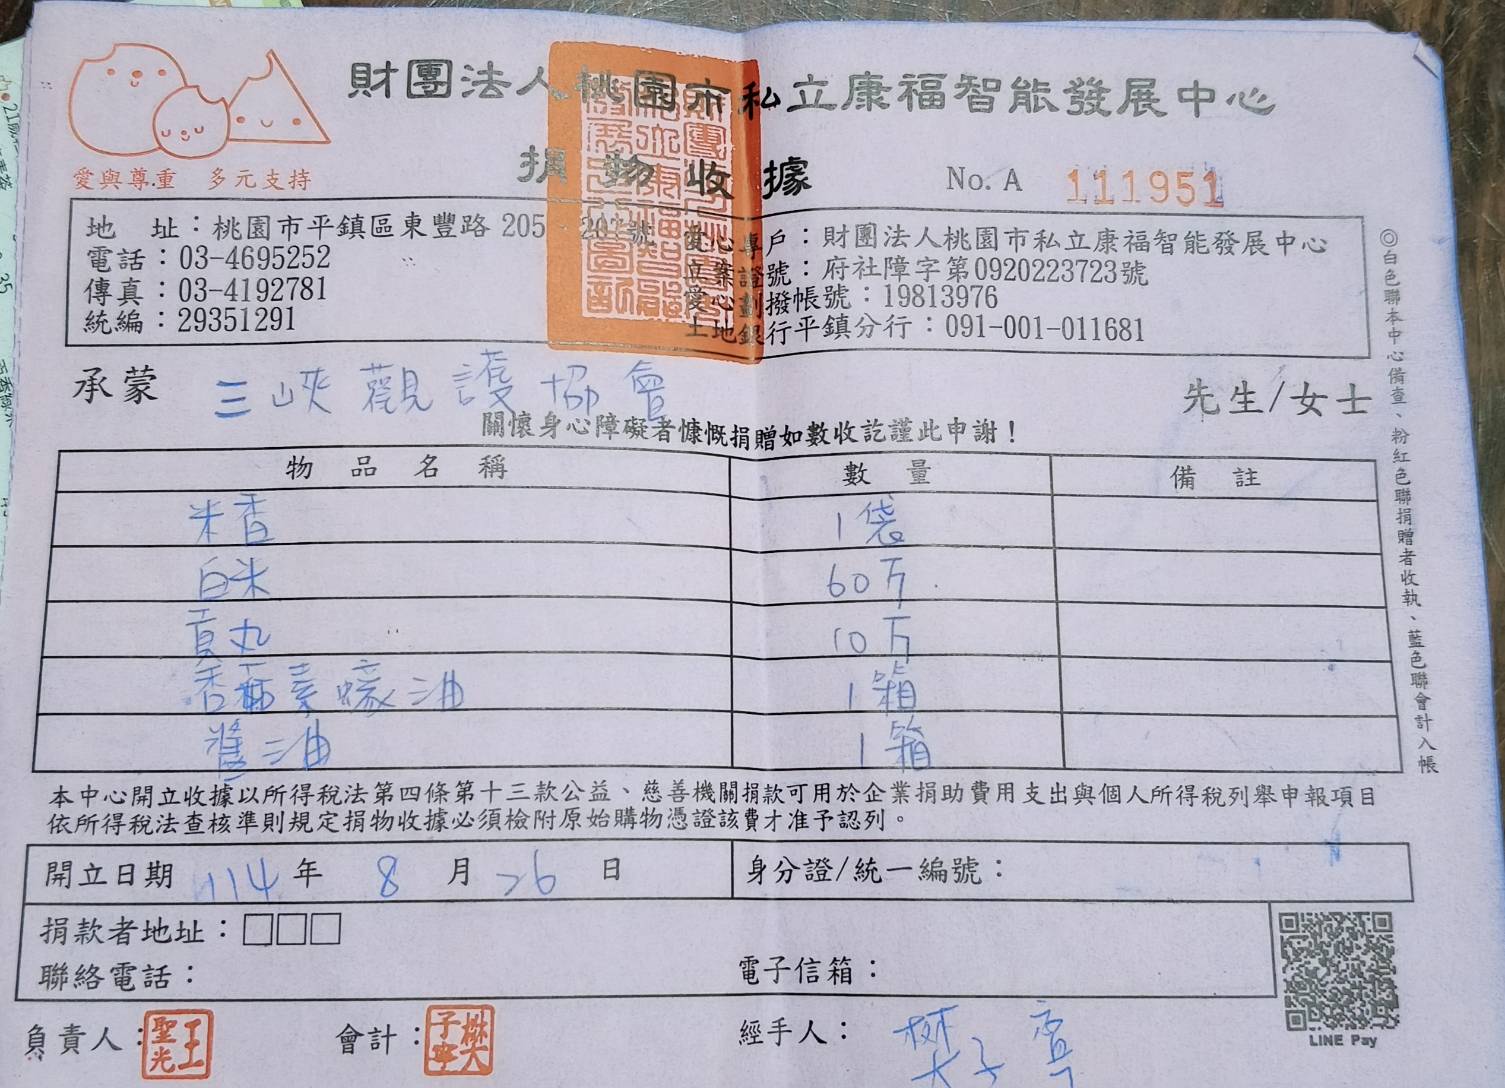 財團法人桃園市私立康福智能發展中心
捐物收據
No. A 111951
愛與尊重 多元支持
地 址：桃園市平鎮區東豐路 205 號
電話：03-4695252
傳真：03-4192781
統編：29351291
愛心專戶：財團法人桃園市私立康福智能發展中心
立案證號：府社障字第0920223723號
愛心劃撥帳號：19813976
土地銀行平鎮分行：091-001-011681
承蒙 三峽觀護協會 先生/女士
關懷身心障礙者慷慨捐贈如數收訖謹此申謝！
物品名稱 數量 備註
米香 1袋
白米 60斤
貢丸 10斤
香菇素蠔油 1箱
醬油 1箱
本中心開立收據以所得稅法第四條第十三款公益、慈善機關捐款可用於企業捐助費用支出與個人所得稅列舉申報項目
依所得稅法查核準則規定捐物收據必須檢附原始購物憑證該費才准予認列。
開立日期 114 年 8 月 26 日 身分證/統一編號：
捐款者地址：□□□
聯絡電話： 電子信箱：
負責人： 王聖光 會計： 樊子寧 經手人： 樊子寧
LINE Pay
◎白色聯本中心備查、粉紅色聯捐贈者收執、藍色聯會計入帳